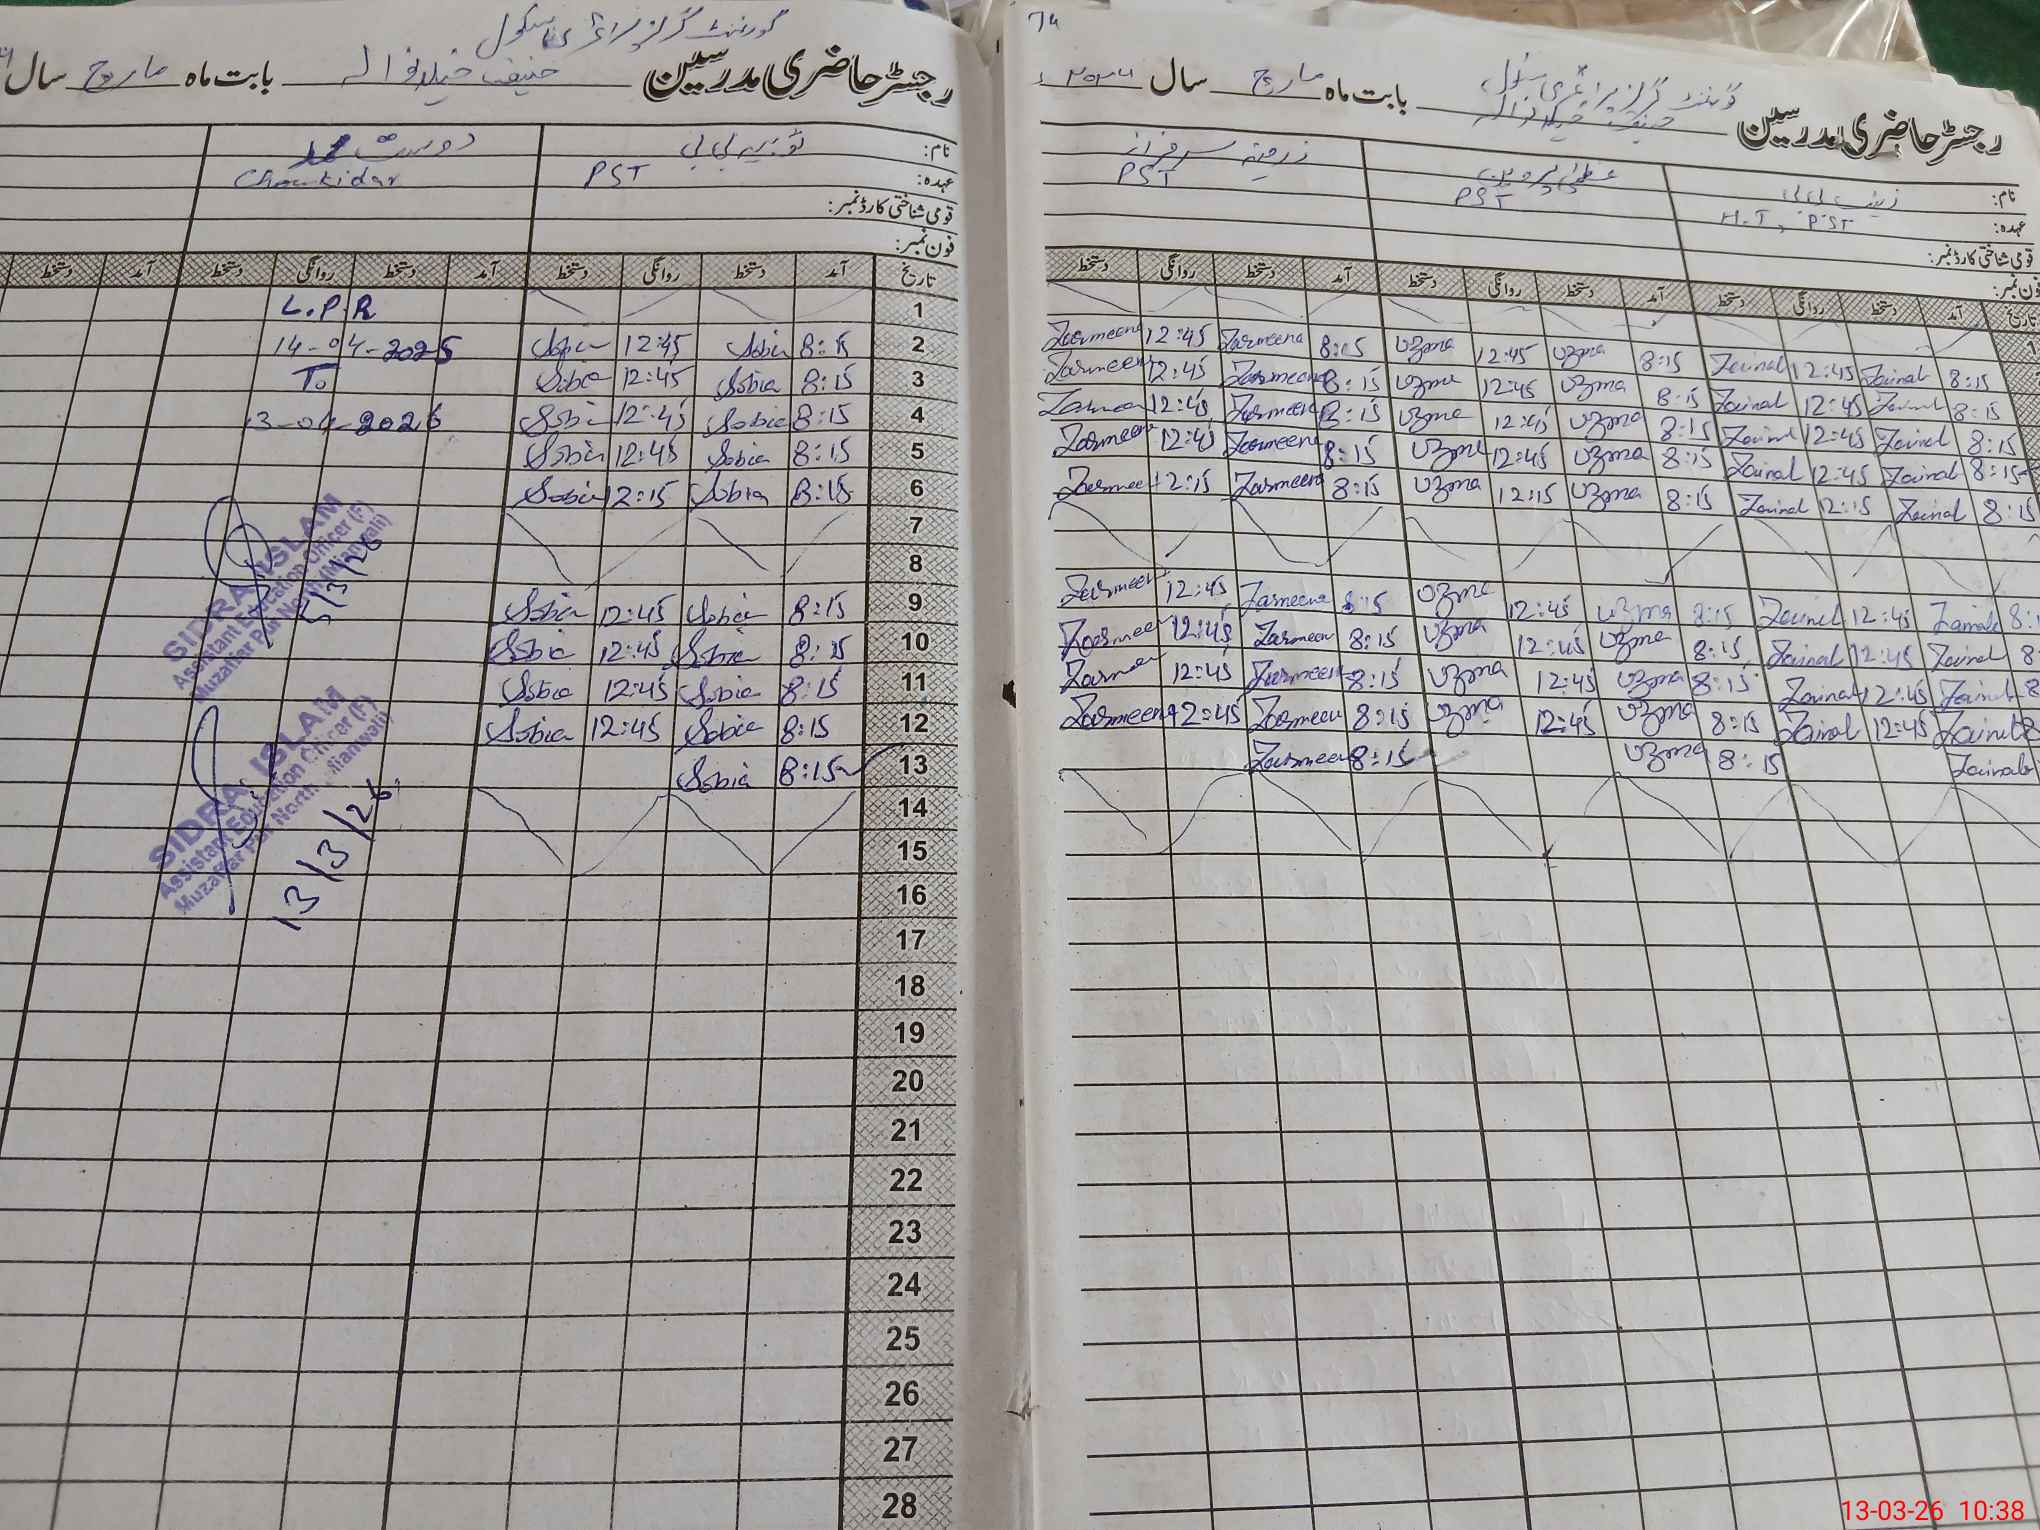 گورنمنٹ گرلز پرائمری سکول
رجسٹر حاضری مدرسین حنیف خیلانوالہ بابت ماہ مارچ سال
نام: ثوبیہ بی بی دوست محمد
عہدہ: PST Chowkidar
قومی شناختی کارڈ نمبر:
فون نمبر:
تاریخ آمد دستخط روانگی دستخط آمد دستخط روانگی دستخط آمد دستخط
1 L.P.R
2 8:15 Sobia 12:45 Sobia 14-04-2025
3 8:15 Sobia 12:45 Sobia To
4 8:15 Sobia 12:45 Sobia 13-04-2026
5 8:15 Sobia 12:45 Sobia
6 8:15 Sobia 12:15 Sobia
7
8
9 8:15 Sobia 12:45 Sobia
10 8:15 Sobia 12:45 Sobia
11 8:15 Sobia 12:45 Sobia
12 8:15 Sobia 12:45 Sobia
13 8:15 Sobia
14
15
16
17
18
19
20
21
22
23
24
25
26
27
28
SIDRA ISLAM
Assistant Education Officer (F)
Muzaffar Pur North (Mianwali)
5/3/26
SIDRA ISLAM
Assistant Education Officer (F)
Muzaffar Pur North (Mianwali)
13/3/26
74
گورنمنٹ گرلز پرائمری سکول
رجسٹر حاضری مدرسین حنیف خیلانوالہ بابت ماہ مارچ سال ۲۰۲۶
نام: زینب بی بی عظمیٰ پروین زرمینہ سرفراز
عہدہ: H.T, PST PST PST
قومی شناختی کارڈ نمبر:
فون نمبر:
تاریخ آمد دستخط روانگی دستخط آمد دستخط روانگی دستخط آمد دستخط روانگی دستخط
1
8:15 Zainab 12:45 Zainab 8:15 Uzma 12:45 Uzma 8:15 Zarmeena 12:45 Zarmeena
8:15 Zainab 12:45 Zainab 8:15 Uzma 12:45 Uzma 8:15 Zarmeena 12:45 Zarmeena
8:15 Zainab 12:45 Zainab 8:15 Uzma 12:45 Uzma 8:15 Zarmeena 12:45 Zarmeena
8:15 Zainab 12:45 Zainab 8:15 Uzma 12:45 Uzma 8:15 Zarmeena 12:45 Zarmeena
8:15 Zainab 12:15 Zainab 8:15 Uzma 12:15 Uzma 8:15 Zarmeena 12:15 Zarmeena
8:1 Zainab 12:45 Zainab 8:15 Uzma 12:45 Uzma 8:15 Zarmeena 12:45 Zarmeena
8 Zainab 12:45 Zainab 8:15 Uzma 12:45 Uzma 8:15 Zarmeena 12:45 Zarmeena
8 Zainab 12:45 Zainab 8:15 Uzma 12:45 Uzma 8:15 Zarmeena 12:45 Zarmeena
8 Zainab 12:45 Zainab 8:15 Uzma 12:45 Uzma 8:15 Zarmeena 12:45 Zarmeena
Zainab 8:15 Uzma 8:15 Zarmeena
13-03-26 10:38